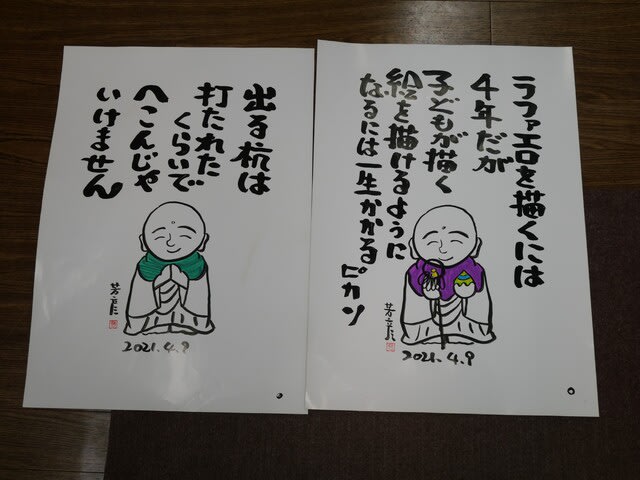 出る杭は
打たれた
くらいで
へこんじゃ
いけません
2021.4.9
ラファエロを描くには
4年だが
子どもが描く
絵を描けるように
なるには一生かかる
ピカソ
2021.4.9